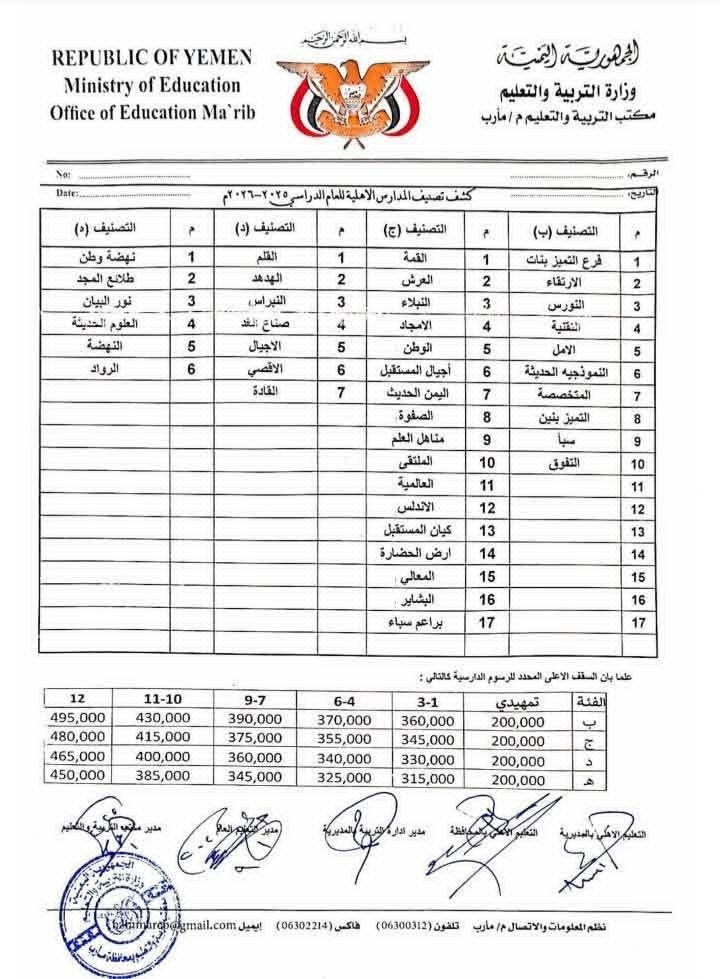 بسم الله الرحمن الرحيم
REPUBLIC OF YEMEN
Ministry of Education
Office of Education Ma`rib
الجمهورية اليمنية
وزارة التربية والتعليم
مكتب التربية والتعليم م/مأرب
No:
الرقم:
Date:
التاريخ:
كشف تصنيف المدارس الاهلية للعام الدراسي ٢٠٢٥-٢٠٢٦م
م التصنيف (ب) م التصنيف (ج) م التصنيف (د) م التصنيف (ه)
1 فرع التميز بنات 1 القمة 1 القلم 1 نهضة وطن
2 الارتقاء 2 العرش 2 الهدهد 2 طلائع المجد
3 النورس 3 النبلاء 3 النبراس 3 نور البيان
4 التقنية 4 الامجاد 4 صناع الغد 4 العلوم الحديثة
5 الامل 5 الوطن 5 الاجيال 5 النهضة
6 النموذجيه الحديثة 6 أجيال المستقبل 6 الاقصي 6 الرواد
7 المتخصصة 7 اليمن الحديث 7 القادة
8 التميز بنين 8 الصفوة
9 سبأ 9 مناهل العلم
10 التفوق 10 الملتقى
11 11 العالمية
12 12 الاندلس
13 13 كيان المستقبل
14 14 ارض الحضارة
15 15 المعالي
16 16 البشاير
17 17 براعم سباء
علما بان السقف الاعلى المحدد للرسوم الدارسية كالتالي :
الفئة تمهيدي 3-1 6-4 9-7 11-10 12
ب 200,000 360,000 370,000 390,000 430,000 495,000
ج 200,000 345,000 355,000 375,000 415,000 480,000
د 200,000 330,000 340,000 360,000 400,000 465,000
هـ 200,000 315,000 325,000 345,000 385,000 450,000
التعليم الاهلي بالمديرية
التعليم الاهلي بالمحافظة
مدير ادارة التربية بالمديرية
مدير التعليم العام
مدير مكتب التربية والتعليم
الجمهورية اليمنية
وزارة التربية والتعليم
نظم المعلومات والاتصال م/مأرب تلفون (06300312) فاكس (06302214) إيميل